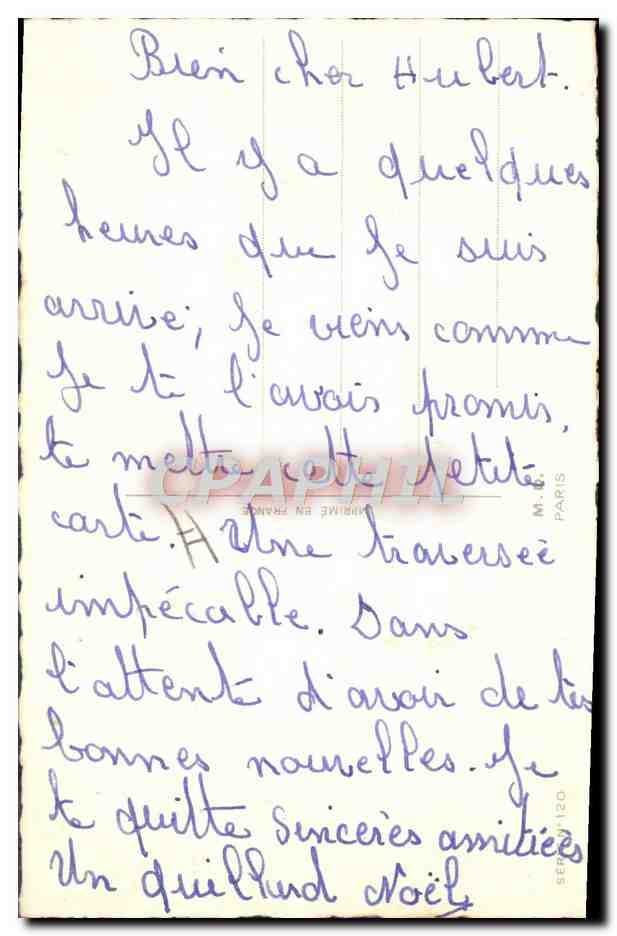 Bien cher Hubert.
Il y a quelques
heures que je suis
arrivé, je viens comme
je te l'avais promis,
te mettre cette petite
carte. Une traverseé
impécable. Dans
l'attente d'avoir de tes
bonnes nouvelles. Je
te quitte sincères amitiées
Un quillard Noël
CPAPHIL
IMPRIMÉ EN FRANCE
M. D.
PARIS
SÉRIE N° 120